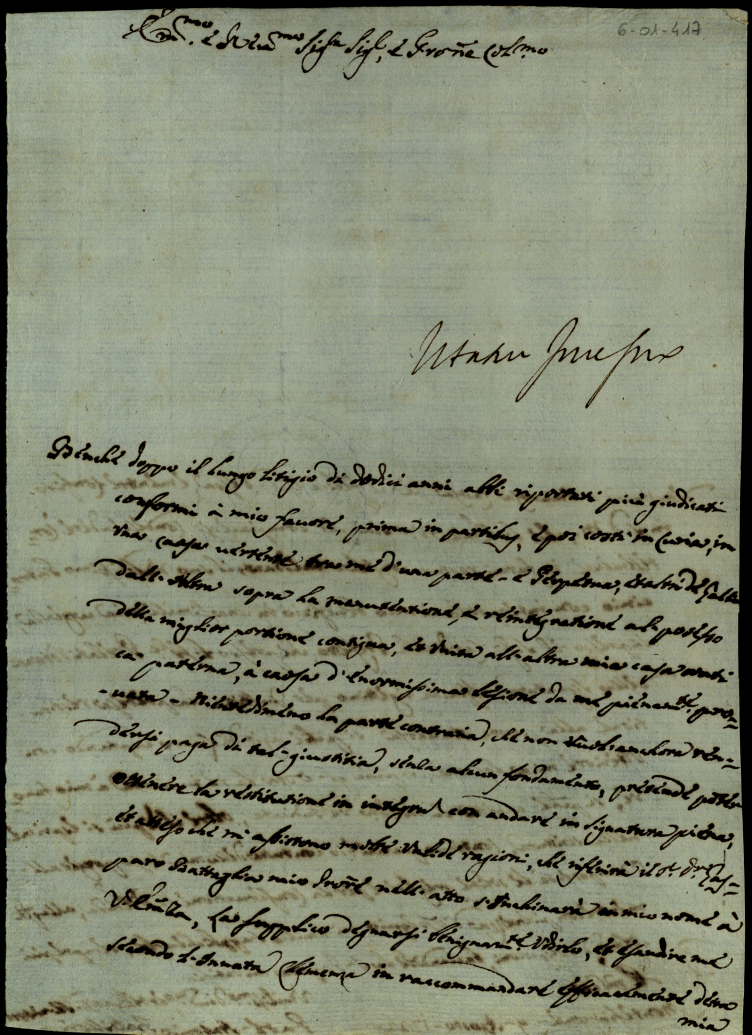 6-01-417
Em.mo e Rev.mo Sig.r Sig.r, e Pro͠ne Col.mo
Benche doppo il lungo litigio di dodici anni abbi riportati più giudicati
conformi à mio favore, prima in partibus, e poi costì in Curia, in
una causa vertente trà me d'una parte, e
dall'altra sopra la manutentione, e reintegratione al possesso
della miglior portione contigua, et unita all'altra mia casa anti
ca paterna, à causa d'enormissima lesione da me pienam.te pro=
=vata. Nientedimeno la parte contraria, che non vuol anchora ren=
dersi paga di tal giustitia, senza alcun fondamento, pretende poter
ottenere la restitutione in integrum con andare in signatura piena,
et atteso che mi assistono molte valide ragioni, che riferirà il S.r Dr. Gas=
paro Battaglia mio Pro͠re nell'atto s'inchinarà in mio nome à
V. Em͠za, La supplico degnarsi benignam.te udirlo, et esaudire me
secondo l'innata Clemenza in raccommandare efficacemente detta
mia